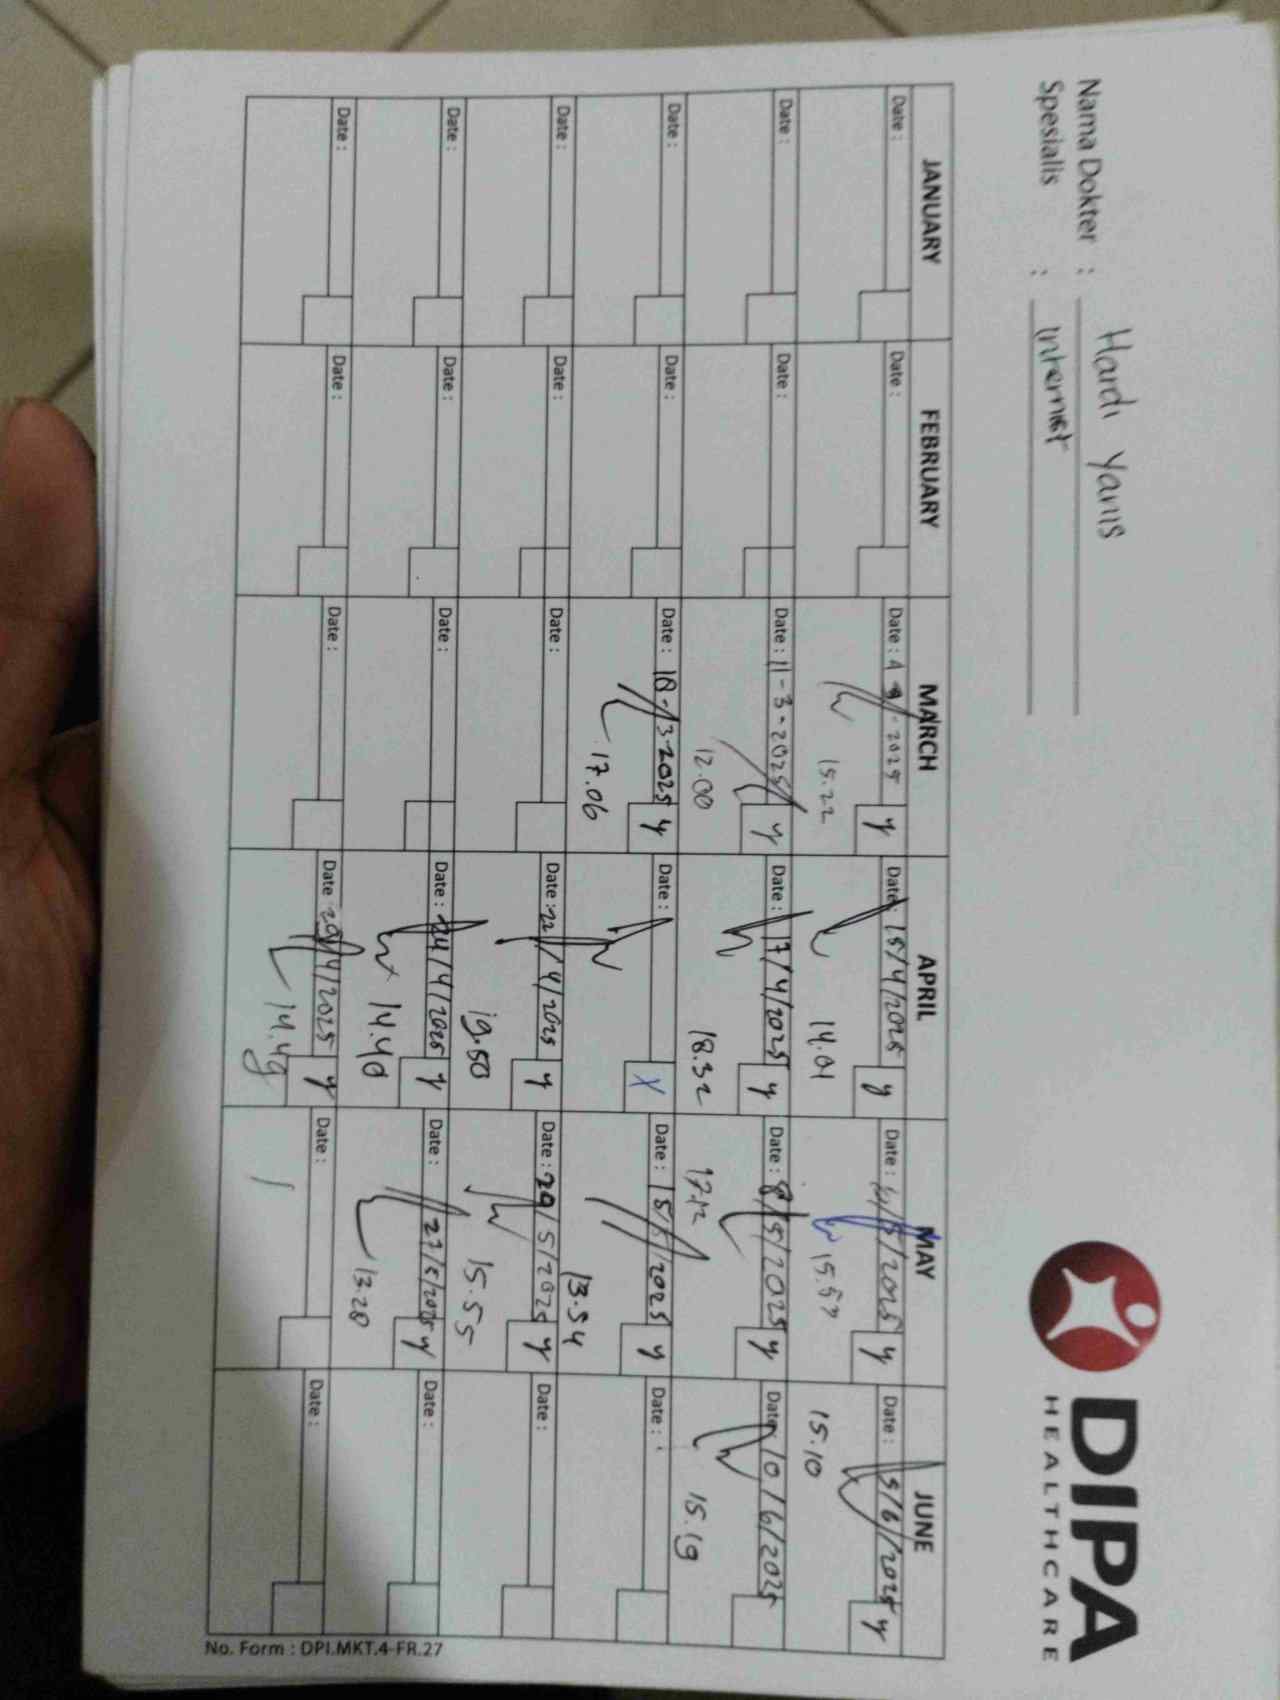 Nama Dokter : Hardi Yanis
Spesialis : Internist
DIPA
HEALTHCARE
JANUARY FEBRUARY MARCH APRIL MAY JUNE
Date : Date : Date : 4 -2025 y Date : 15/4/2025 y Date : /5/2025 y Date : 5/6/2025 y
15.22 14.01 15.57 15.10
Date : Date : Date : 11-3-2025 y Date : 17/4/2025 y Date : 8/5/2025 y Date : 10/6/2025
12.00 18.32 17.12 15.19
Date : Date : Date : 18-3-2025 y Date : X Date : 15/5/2025 y Date :
17.06 13.54
Date : Date : Date : Date : 22/4/2025 y Date : 20/5/2025 y Date :
19.50 15.55
Date : Date : Date : Date : 24/4/2025 y Date : 27/5/2025 y Date :
14.40 13.28
Date : Date : Date : Date : 29/4/2025 y Date : Date :
14.49
No. Form : DPI.MKT.4-FR.27